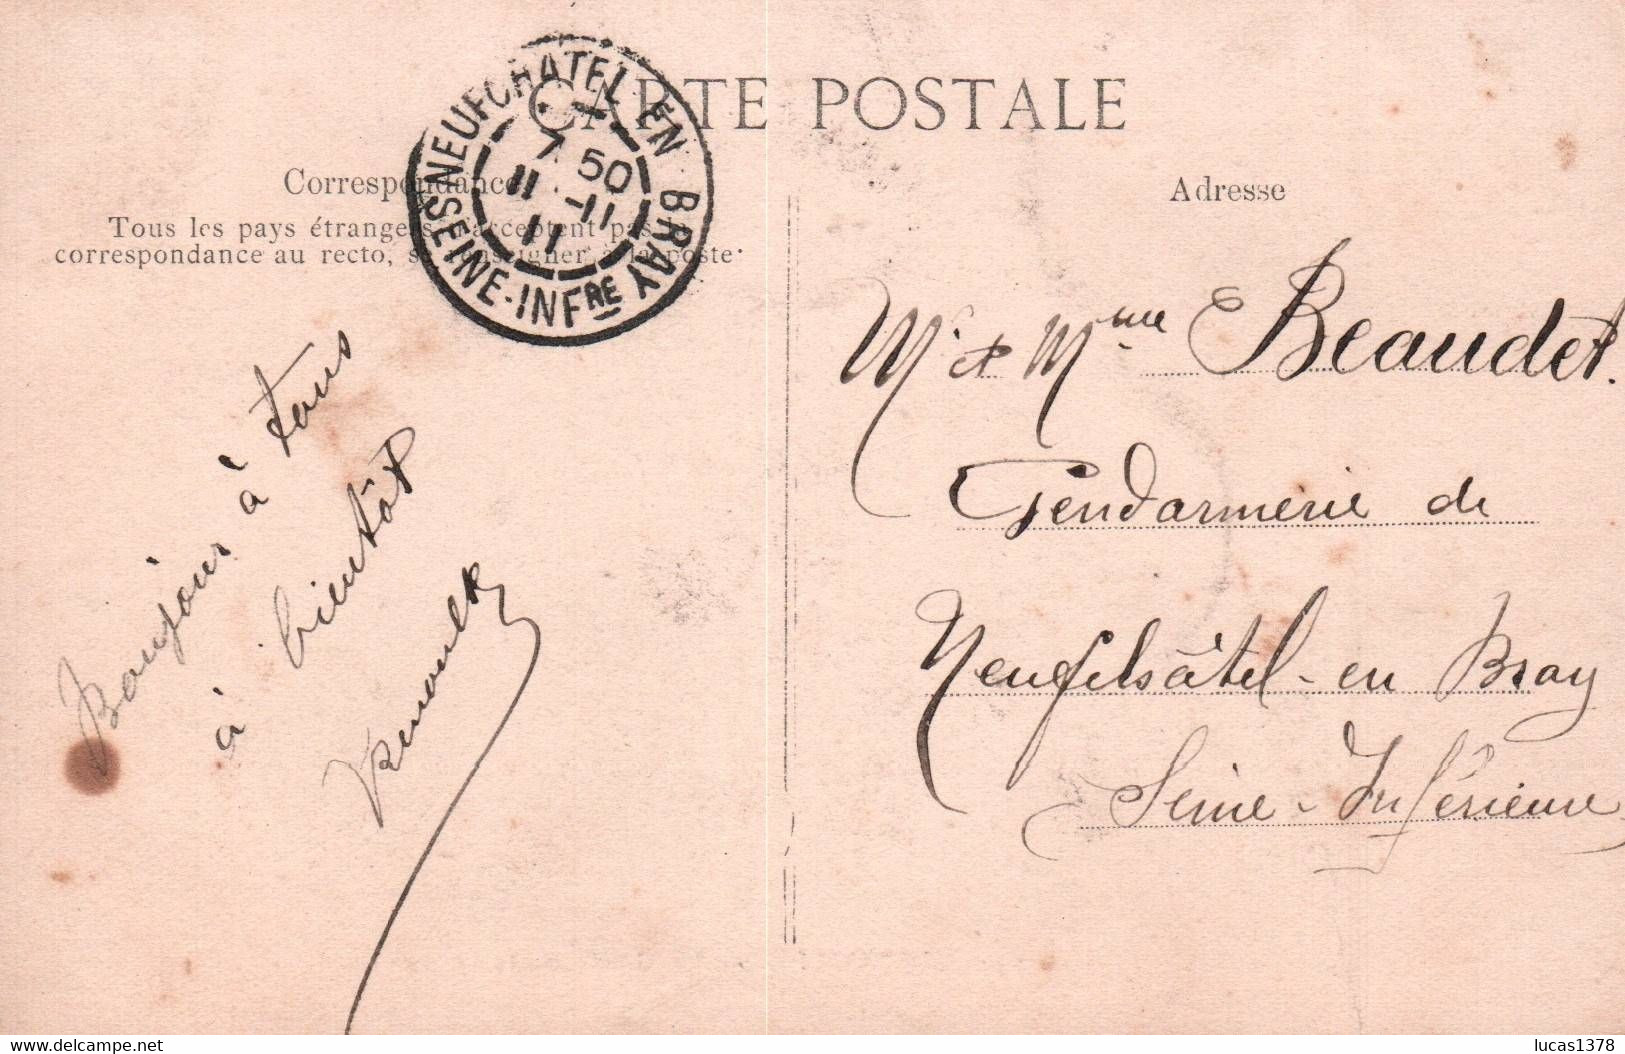 CARTE POSTALE
NEUFCHATEL EN BRAY
SEINE-INFRE
7 50
11 -11
11
Correspondance
Tous les pays étrangers n'acceptent pas la
correspondance au recto, se renseigner à la poste
Bonjour à tous
à bientôt
Adresse
Mr et Mme Beaudet.
Gendarmerie de
Neufchâtel-en Bray
Seine-Inférieure
www.delcampe.net
lucas1378